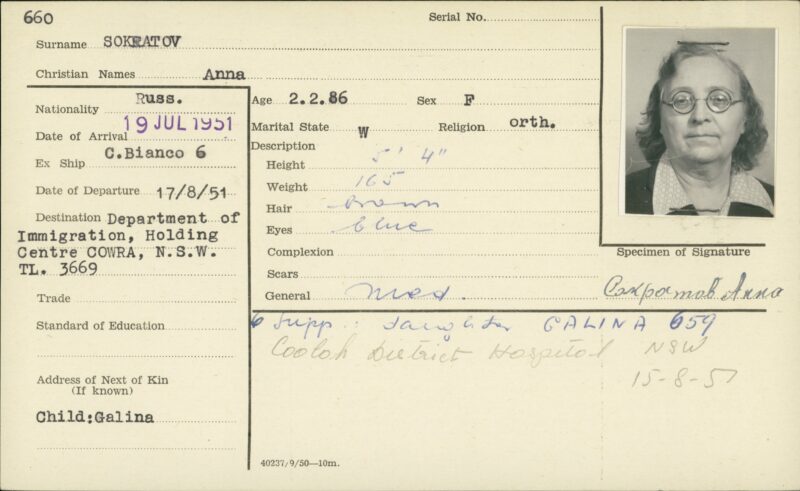 660
Serial No.
Surname SOKRATOV
Christian Names Anna
Nationality Russ.
Date of Arrival 19 JUL 1951
Ex Ship C.Bianco 6
Date of Departure 17/8/51
Destination Department of
Immigration, Holding
Centre COWRA, N.S.W.
TL. 3669
Trade
Standard of Education
Address of Next of Kin
(If known)
Child:Galina
Age 2.2.86 Sex F
Marital State W Religion orth.
Description
Height 5' 4"
Weight 165
Hair brown
Eyes blue
Complexion
Scars
General med.
Specimen of Signature
Сократов Анна
Supp: daughter GALINA 659
Coolah District Hospital NSW
15-8-51
40237/9/50—10m.